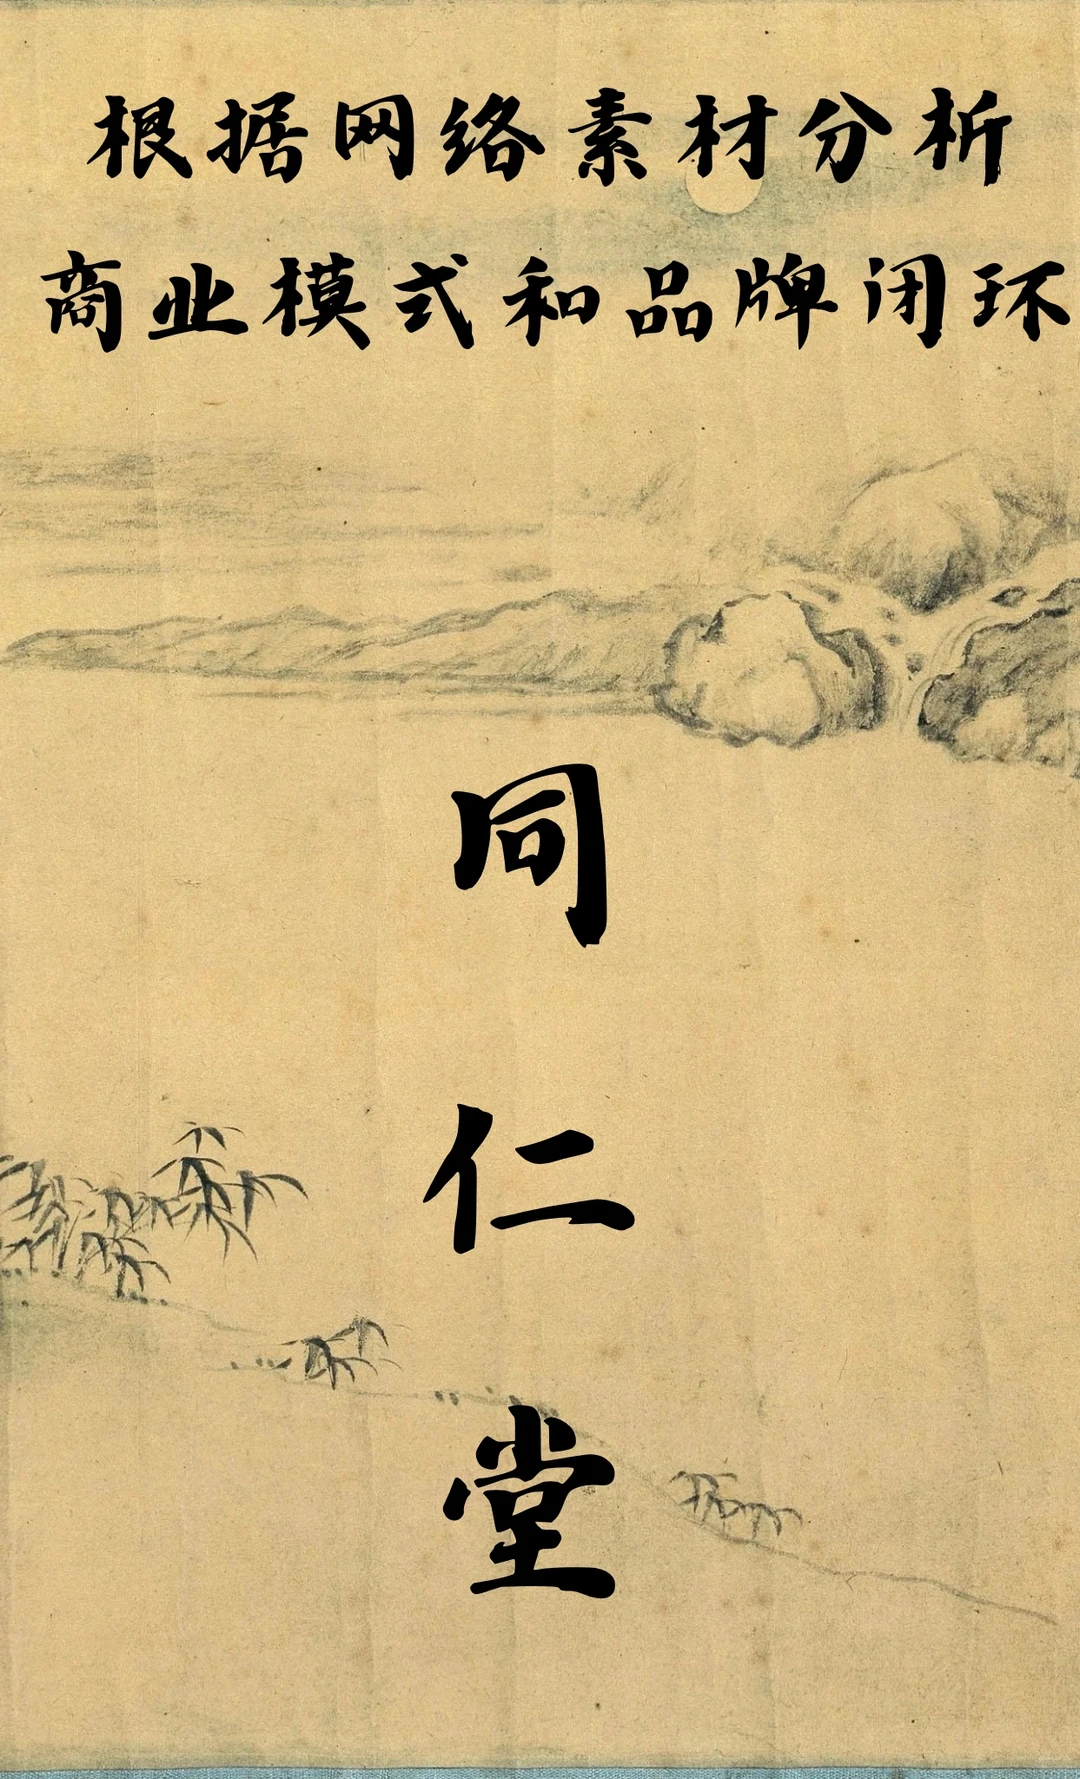 根据网络素材分析
商业模式和品牌闭环
同
仁
堂